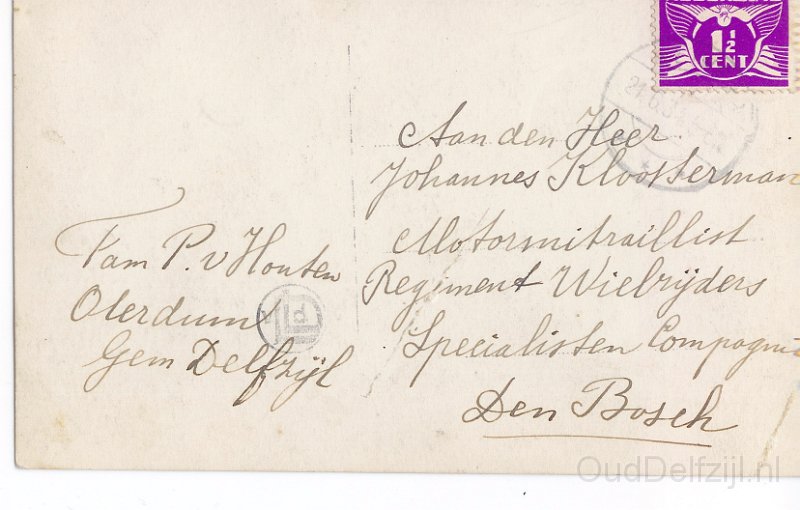 1½
CENT
Aan den Heer
Johannes Kloosterman
Motormitraillist
Regiment Wielrijders
Specialisten Compagnie
Den Bosch
Fam P. v Houten
Oterdum
Gem Delfzijl
OudDelfzijl.nl